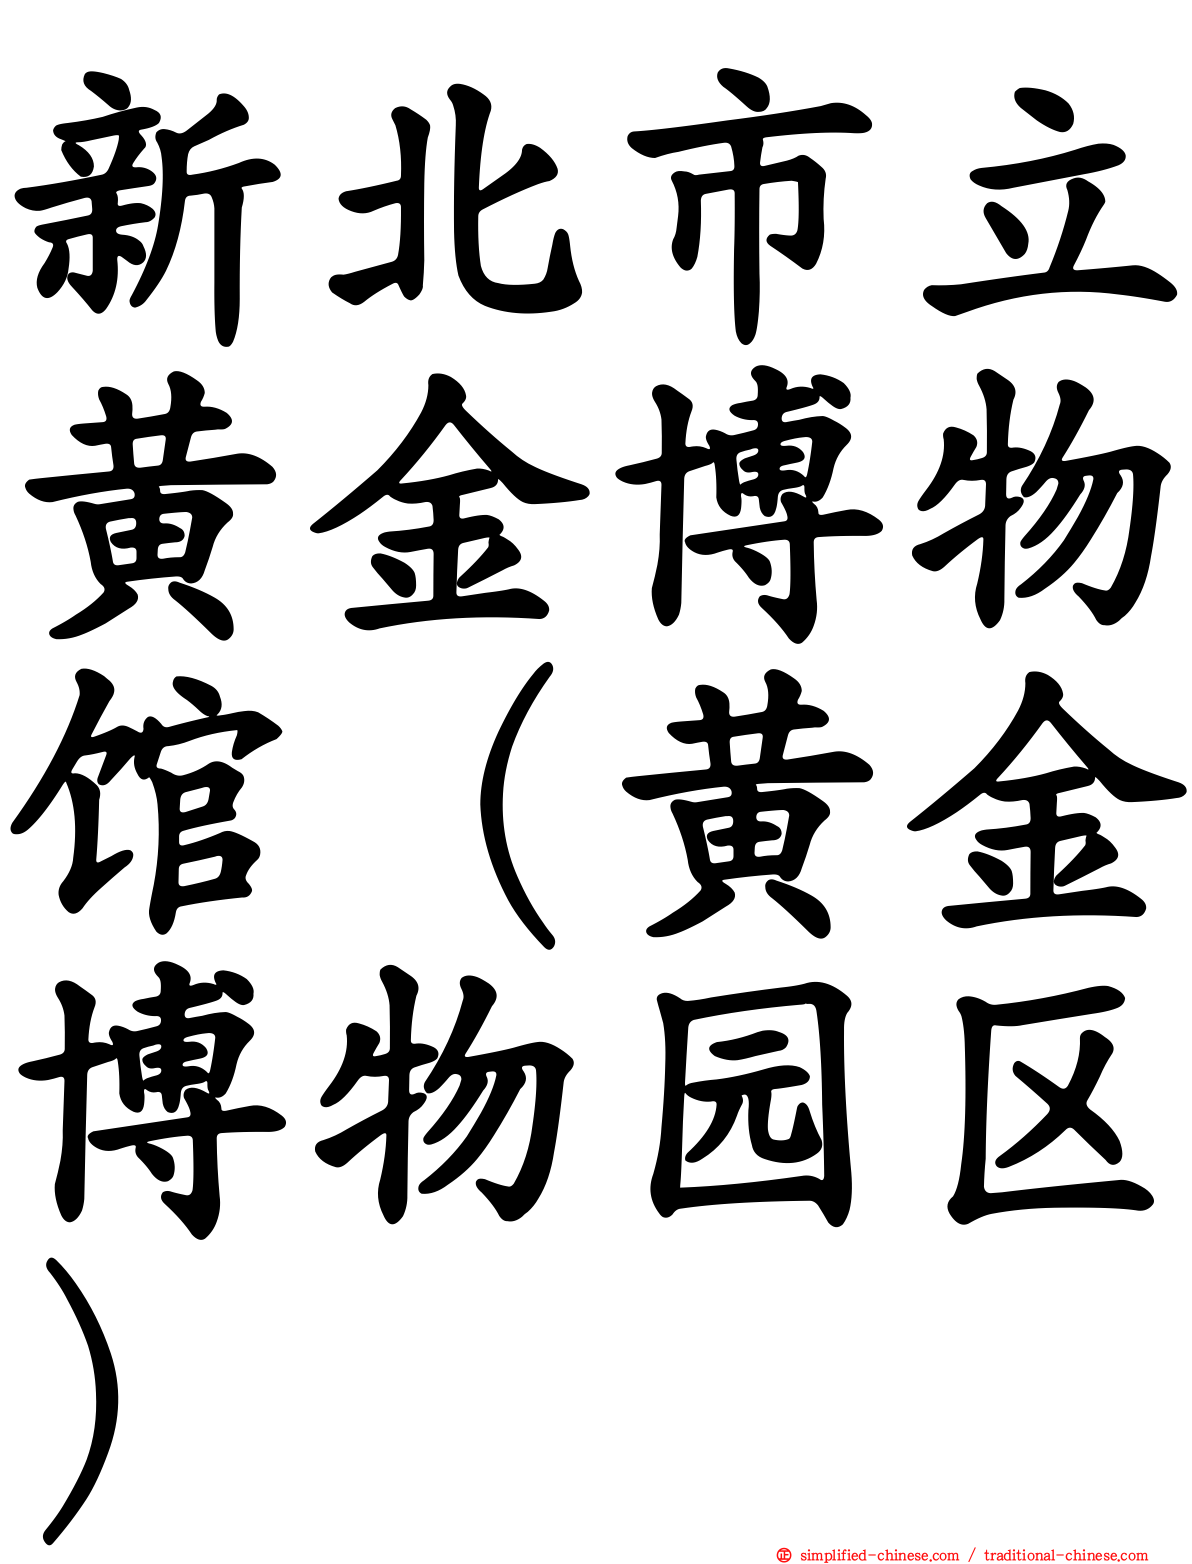 新北市立
黄金博物
馆（黄金
博物园区
）
㊣ simplified-chinese.com / traditional-chinese.com